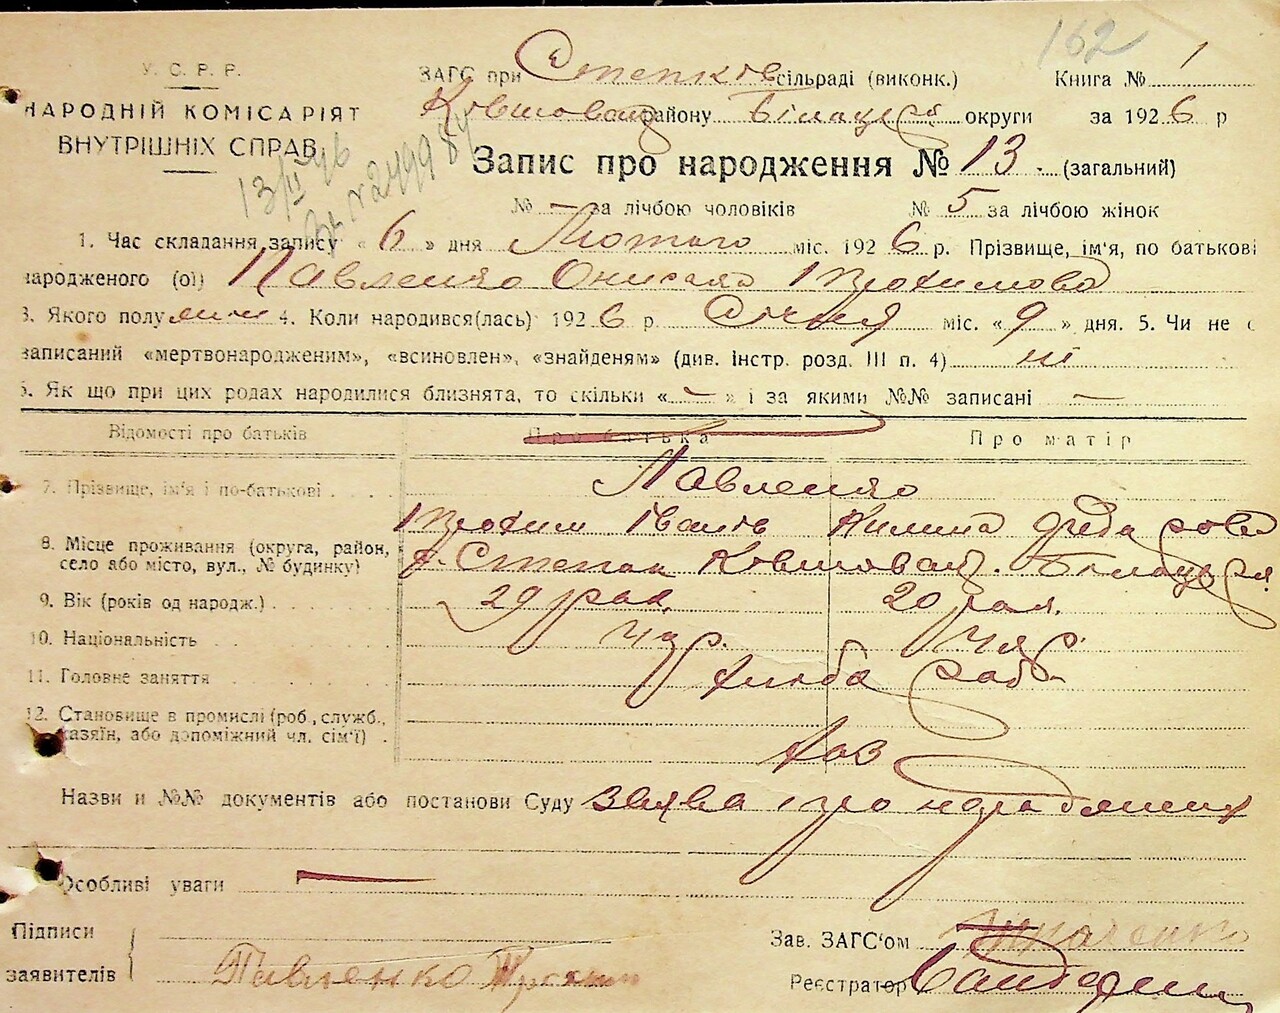 162
У. С. Р. Р.
НАРОДНІЙ КОМІСАРІЯТ
ВНУТРІШНІХ СПРАВ
ЗАГС при Степків сільраді (виконк.) Книга № 1
Ковшоват району Білацерк округи за 1926 р
13/II 46
№ 249984
Запис про народження № 13 (загальний)
№ – за лічбою чоловіків № 5 за лічбою жінок
1. Час складання запису « 6 » дня Лютого міс. 1926 р. Прізвище, ім'я, по батькові
народженого (ої) Павленко Онисія Трохимова
3. Якого полу жін 4. Коли народився(лась) 1926 р Січня міс. « 9 » дня. 5. Чи не є
записаний «мертвонародженим», «всиновлен», «знайденям» (див. інстр. розд. III п. 4) ні
6. Як що при цих родах народилися близнята, то скільки « – » і за якими №№ записані –
Відомості про батьків Про батька Про матір
7. Прізвище, ім'я і по-батькові Павленко
Трохим Іванів Килина
8. Місце проживання (округа, район, село або місто, вул., № будинку) с. Степок Ковшоват. Білоцерк.
9. Вік (років од народж.) 29 рок. 20 рок.
10. Національність Укр. Укр.
11. Головне заняття хліб роб
12. Становище в промислі (роб., служб., хазяїн, або допоміжний чл. сім'ї) хаз
Назви и №№ документів або постанови Суду Заява про народження
Особливі уваги
Підписи
заявителів Павленко Трохим
Зав. ЗАГС'ом
Реєстратор